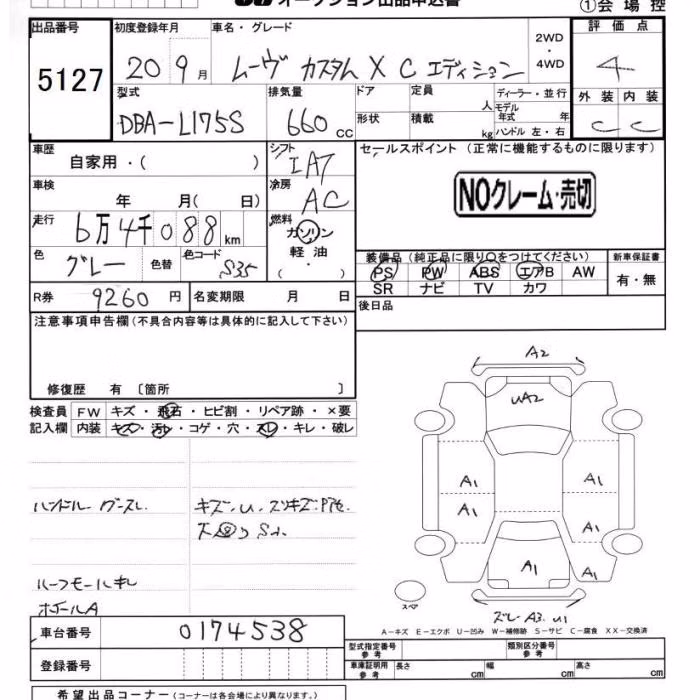 オークション出品申込書
①会場控
出品番号 初度登録年月 車名・グレード 評価点
5127 20 9月 ムーヴ カスタム X Cエディション 2WD・4WD 4
型式 排気量 ドア 定員 人 ディーラー・並行 外装 内装
DBA-L175S 660cc 形状 積載 kg モデル年式 年 ハンドル 左・右 C C
車歴 シフト セールスポイント (正常に機能するものに限ります)
自家用・( ) IAT
車検 冷房 NOクレーム・売切
年 月( 日) AC
走行 6万4千088km 燃料
ガソリン
軽油
( ・ )
色 グレー 色替 色コード S35
装備品(純正品に限り○をつけてください) 新車保証書
PS PW ABS エアB AW 有・無
SR ナビ TV カワ
R券 9260円 名変期限 月 日 後日品
注意事項申告欄(不具合内容等は具体的に記入して下さい)
修復歴 有 〔箇所 〕
検査員 FW キズ・飛石・ヒビ割・リペア跡・×要
記入欄 内装 キズ・汚レ・コゲ・穴・スレ・キレ・破レ
ハンドル
ルーフモールキレ
A2
UA2
A1 A1
A1 A1
A1 A1
スペア
ズレ A3. U1
A−キズ E−エクボ U−凹み W−補修跡 S−サビ C−腐食 XX−交換済
車台番号 0174538
登録番号
型式指定番号 参考 類別区分番号 参考
車庫証明用 参考 長さ cm 幅 cm 高さ cm
希望出品コーナー(コーナーは各会場により異なります。)